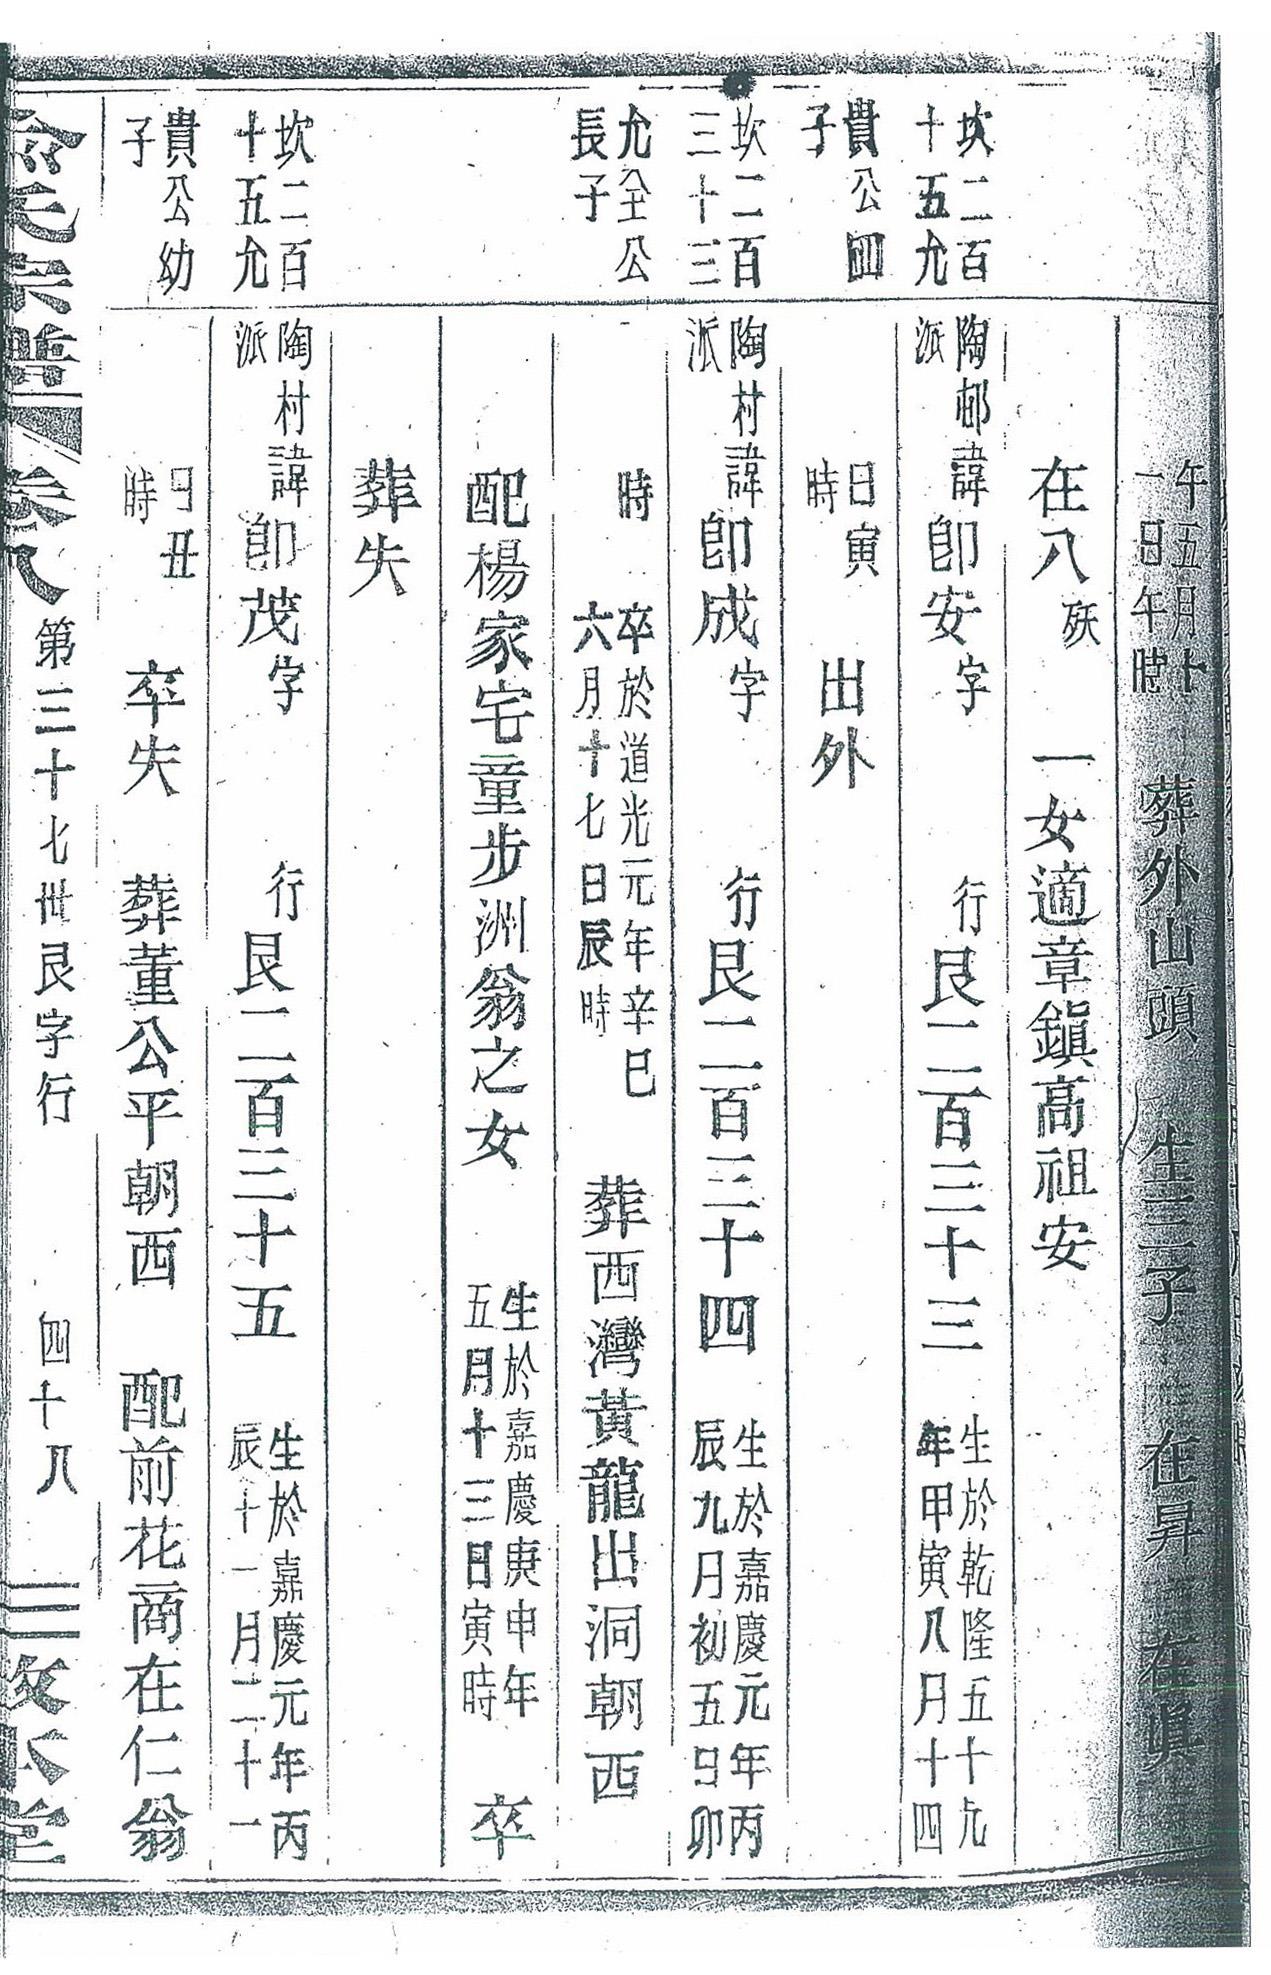 午五月十
一日午時
葬外山頭
生三子
在昇
在
在八殀
一女適章鎮高祖安
坎二百
十五允
貴公四
子
陶邨諱卽安字
派
行艮二百三十三
生於乾隆五十九
年甲寅八月十四
日寅
時
出外
坎二百
三十三
允全公
長子
陶村諱卽成字
派
行艮二百三十四
生於嘉慶元年丙
辰九月初五日卯
時
卒於道光元年辛巳
六月十七日辰時
葬西灣黃龍出洞朝西
配楊家宅童步洲翁之女
生於嘉慶庚申年
五月十三日寅時
卒
葬失
坎二百
十五允
貴公幼
子
陶村諱卽茂字
派
行艮二百三十五
生於嘉慶元年丙
辰十一月二十一
日丑
時
卒失
葬董公平朝西
配前花商在仁翁
氏宗譜
卷八
第三十七世艮字行
四十八
本堂